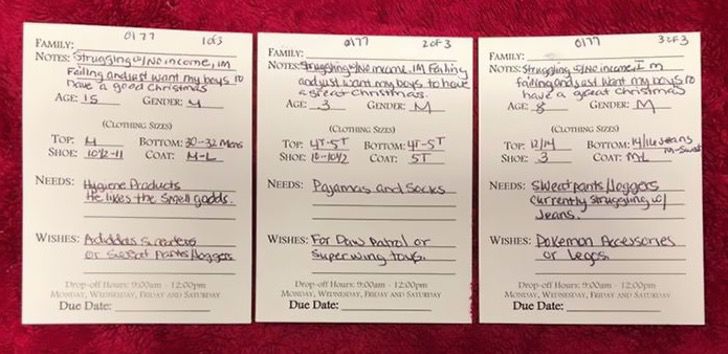 0177 1of3
FAMILY:
NOTES: Struggling w/No income, IM
Failing and just want my boys to
have a good Christmas
AGE: 15 GENDER: M
(CLOTHING SIZES)
TOP: M BOTTOM: 30-32 Mens
SHOE: 10½-11 COAT: M-L
NEEDS: Hygiene Products
He likes the smell goods.
WISHES: Adidas Sweaters
or sweat pants/Joggers
Drop-off Hours: 9:00am - 12:00pm
MONDAY, WEDNESDAY, FRIDAY AND SATURDAY
Due Date:
0177 2of3
FAMILY:
NOTES: Struggling w/No income, IM Failing
and just want my boys to have
a great Christmas.
AGE: 3 GENDER: M
(CLOTHING SIZES)
TOP: 4T-5T BOTTOM: 4T-5T
SHOE: 10-10½ COAT: 5T
NEEDS: Pajamas and Socks
WISHES: For Paw Patrol or
Super wing toys.
Drop-off Hours: 9:00am - 12:00pm
MONDAY, WEDNESDAY, FRIDAY AND SATURDAY
Due Date:
0177 3of3
FAMILY:
NOTES: Struggling w/No income, I'm
failing and just want my boys to
have a great Christmas
AGE: 8 GENDER: M
(CLOTHING SIZES)
TOP: 12/14 BOTTOM: 14/16 Jeans
M-Sweat
SHOE: 3 COAT: M-L
NEEDS: Sweatpants/Joggers
Currently struggling w/
Jeans.
WISHES: Pokemon Accessories
or Legos
Drop-off Hours: 9:00am - 12:00pm
MONDAY, WEDNESDAY, FRIDAY AND SATURDAY
Due Date: